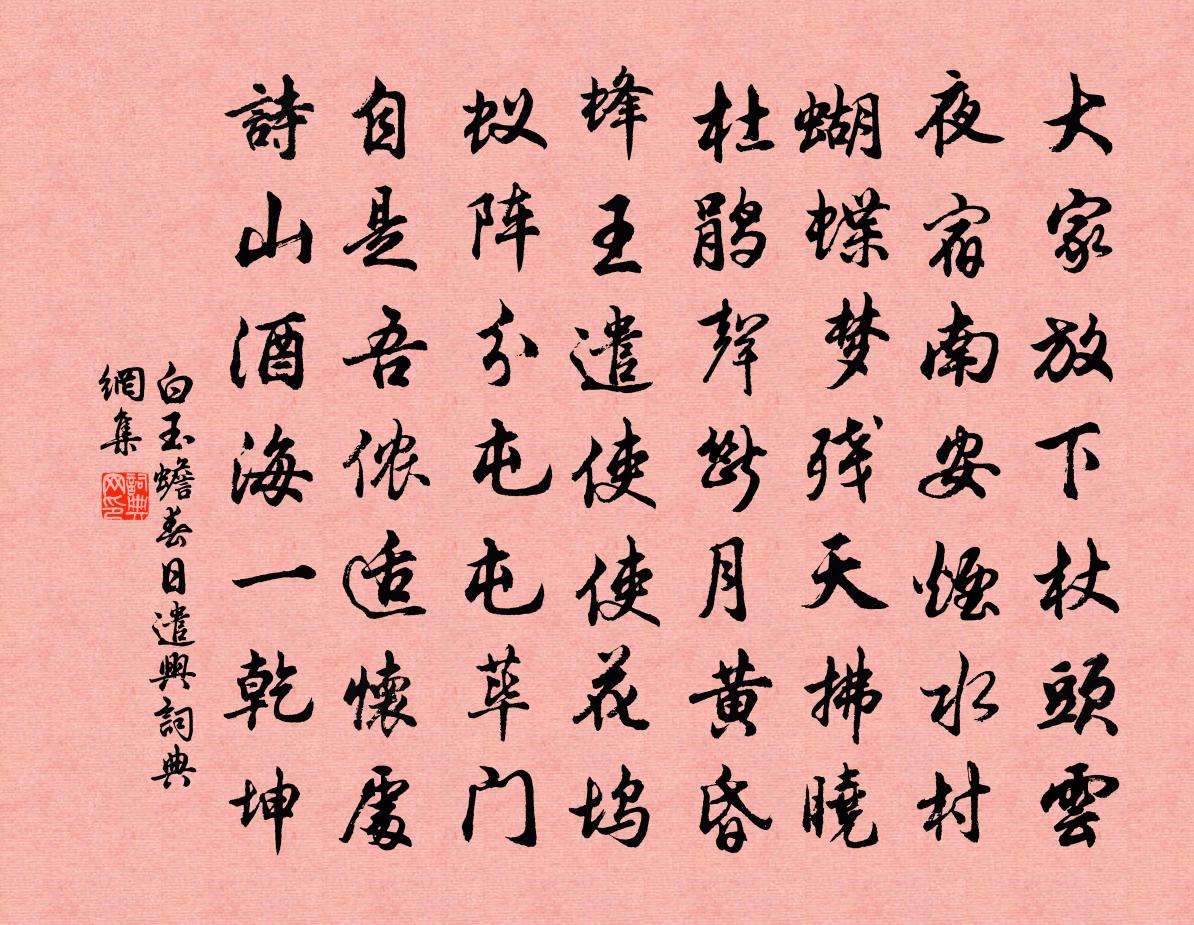 大家放下杖頭雲
夜宿南安煙水村
蝴蝶梦残天拂曉
杜鹃聲斷月黄昏
蜂王遣使使花坞
蚁阵分屯屯荜门
自是吾侬适懷處
詩山酒海一乾坤
白玉蟾春日遣興詞典
網集
詞典网印